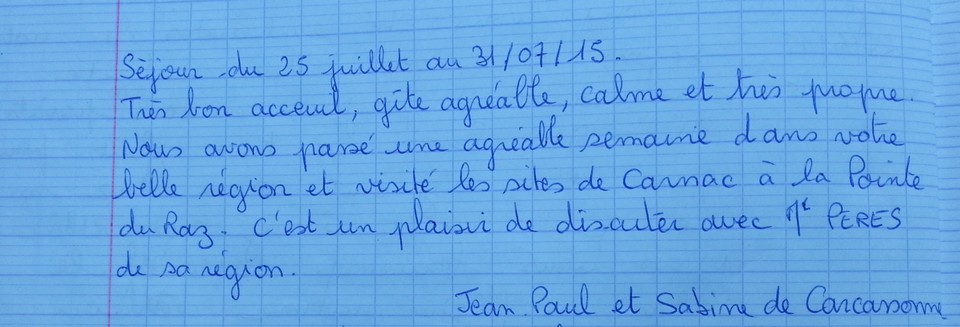 Séjour du 25 juillet au 31/07/15.
Très bon acceuil, gîte agréable, calme et très propre.
Nous avons passé une agréable semaine dans votre
belle région et visité les sites de Carnac à la Pointe
du Raz. C'est un plaisir de discuter avec Mr PERES
de sa région.
Jean Paul et Sabine de Carcassonne